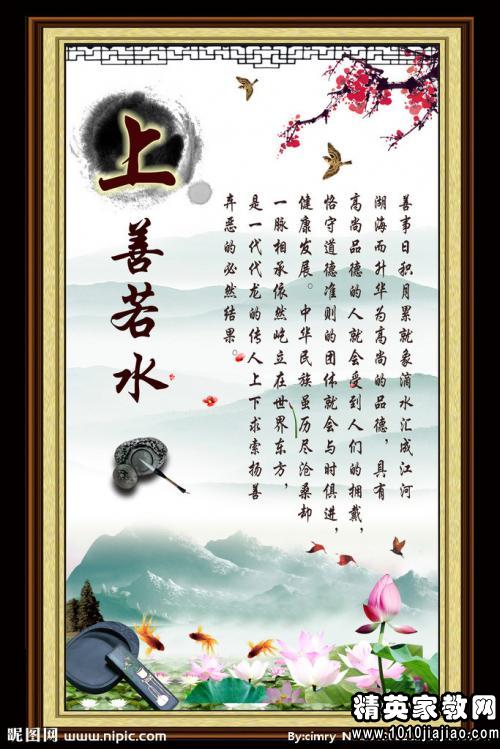 上善若水
善事日积月累就象滴水汇成江河
湖海而升华为高尚的品德，具有
高尚品德的人就会受到人们的拥戴，
恪守道德准则的团体就会与时俱进，
健康发展。中华民族虽历尽沧桑却
一脉相承依然屹立在世界东方，
是一代代龙的传人上下求索扬善
弃恶的必然结果。
昵图网 www.nipic.com
By:cimry
精英家教网
www.1010jiajiao.com